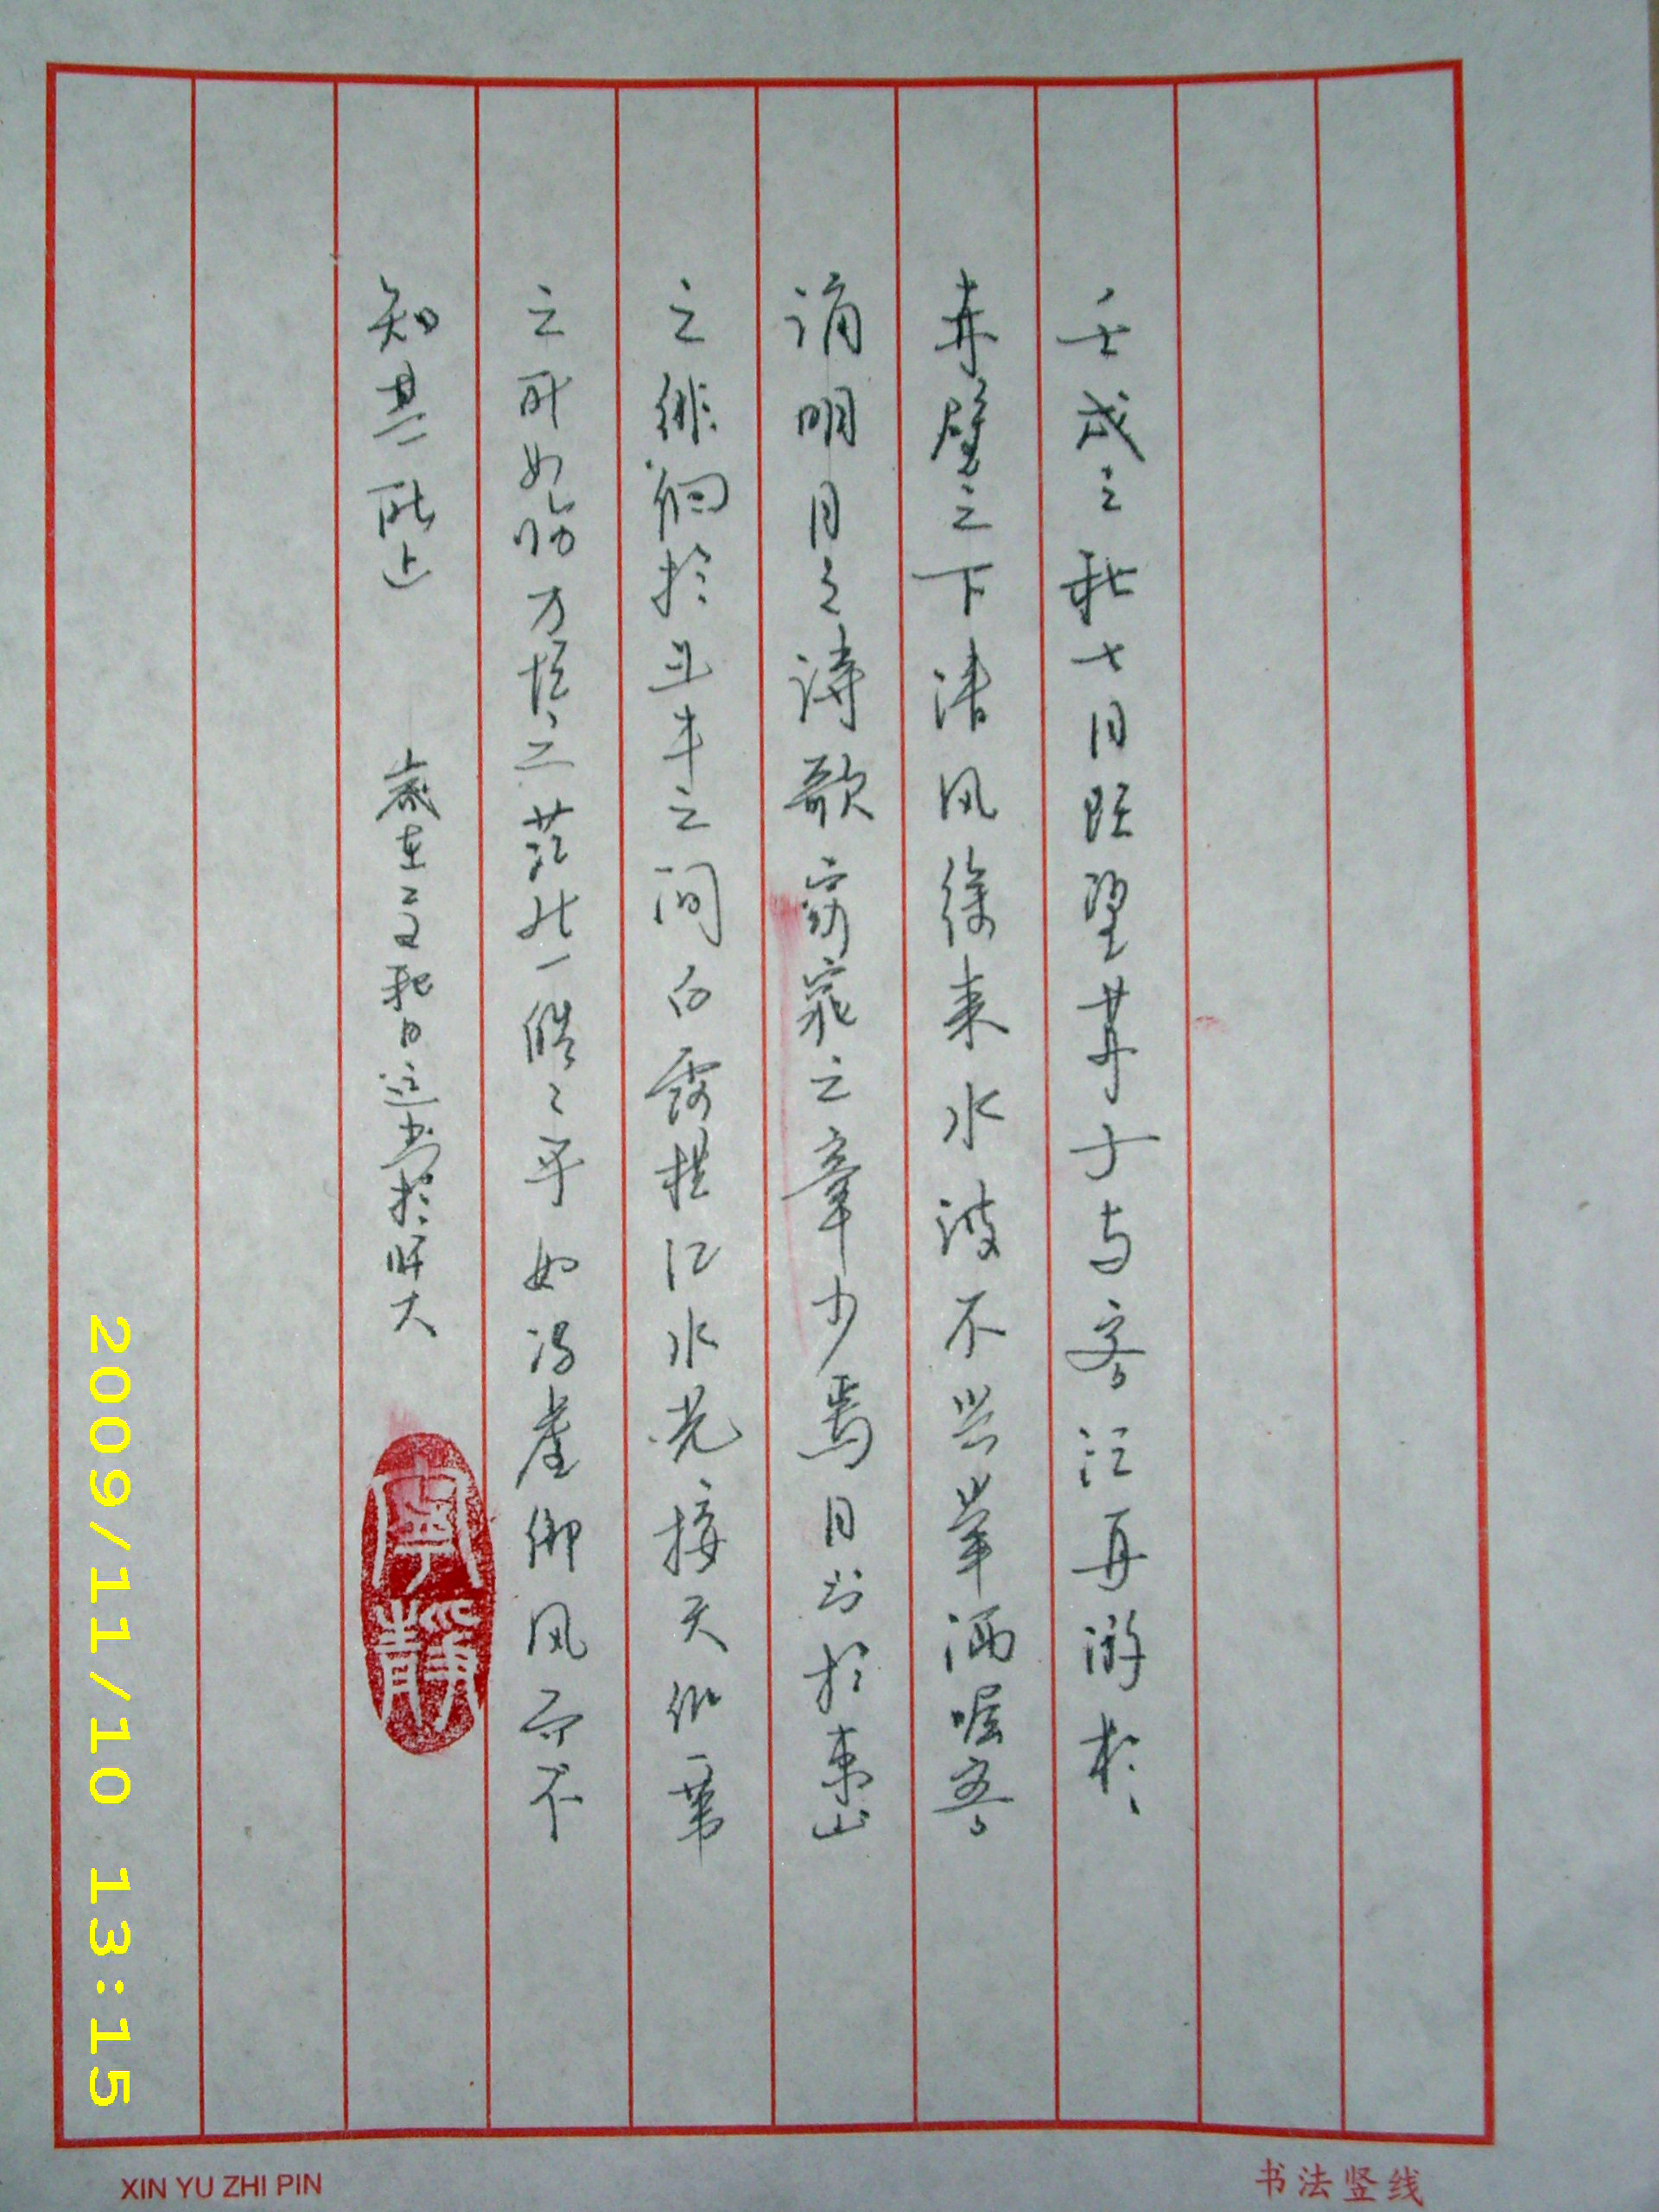 壬戌之秋七月既望苏子与客泛舟游於
赤壁之下清风徐来水波不兴举酒嘱客
诵明月之诗歌窈窕之章少焉月出於東山
之徘徊於斗牛之间白露横江水光接天纵一苇
之所如万顷之茫然浩々乎如冯虚御风而不
知其所止
岁在己丑秋日书於师大
宁静
2009/11/10 13:15
XIN YU ZHI PIN
书法竖线